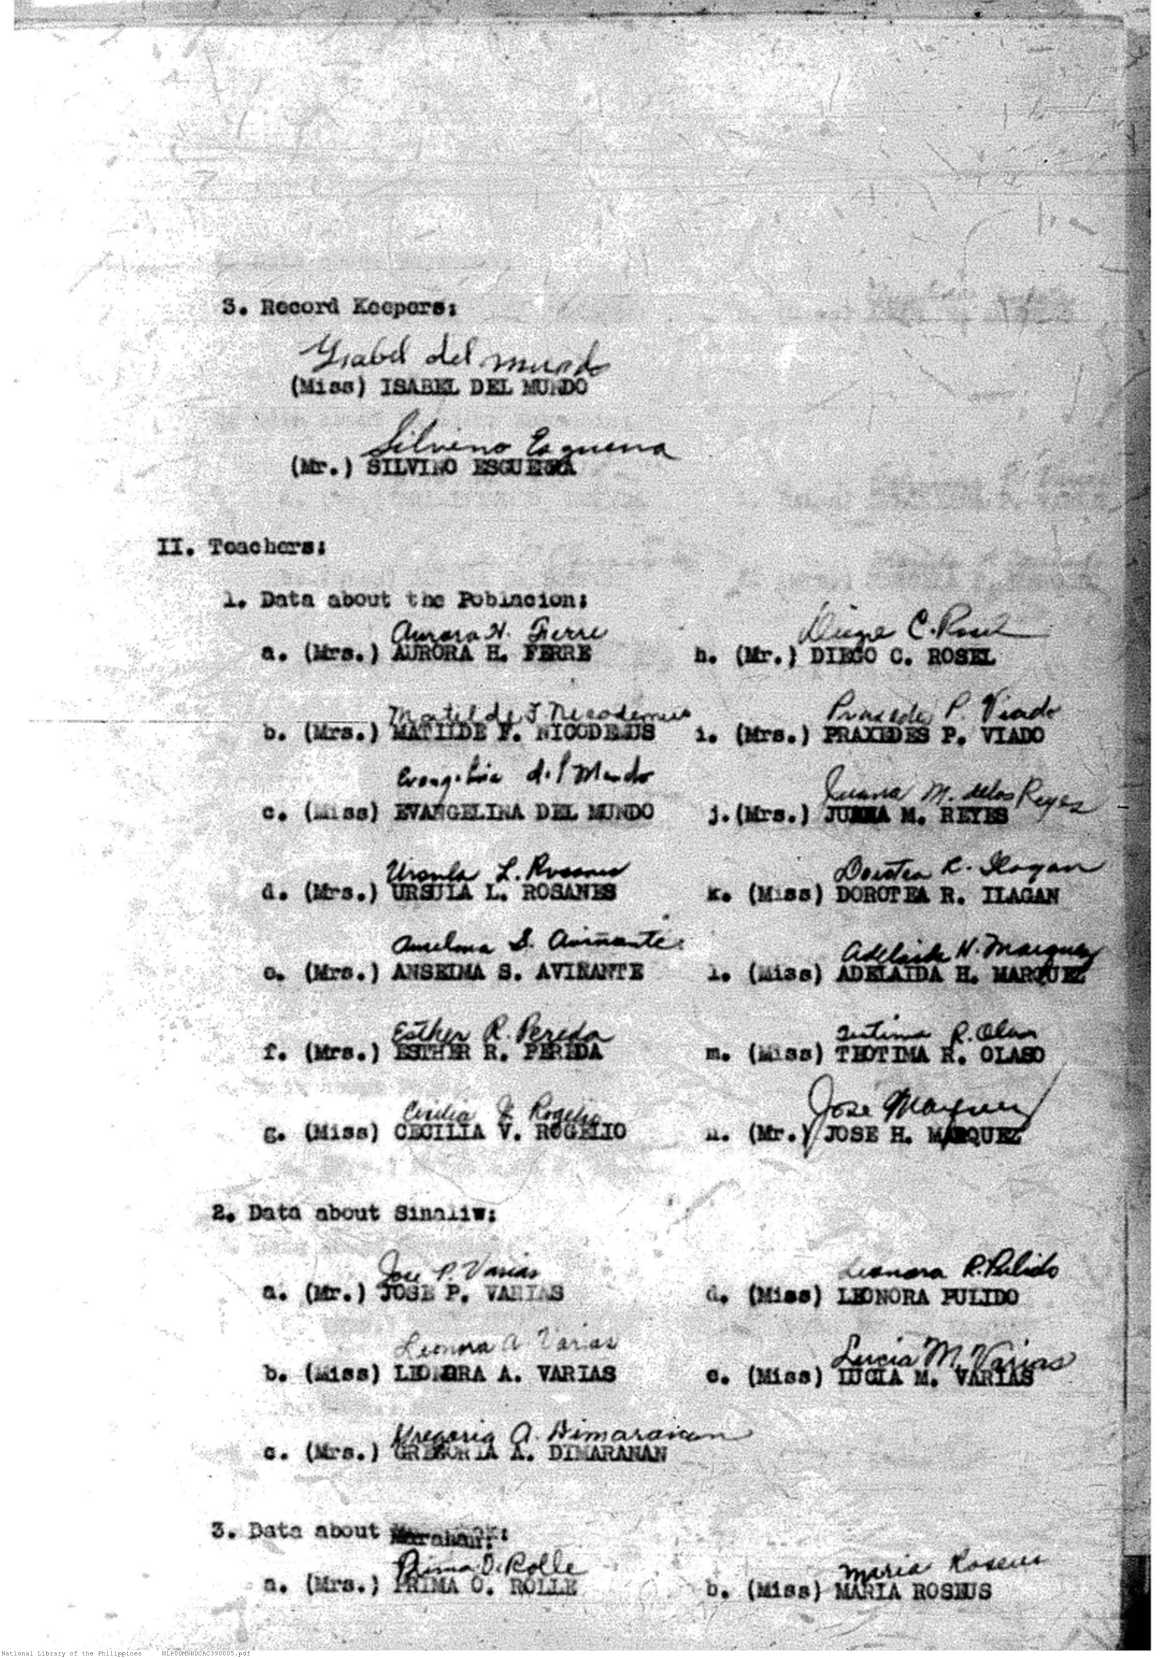 3. Record Keepers:
Ysabel del Mundo
(Miss) ISABEL DEL MUNDO
Silvino Esguerra
(Mr.) SILVINO ESGUERRA
II. Teachers:
1. Data about the Poblacion:
Aurora H. Ferre
a. (Mrs.) AURORA H. FERRE
Matilde F. Nicodemus
b. (Mrs.) MATILDE F. NICODEMUS
Evangelina del Mundo
c. (Miss) EVANGELINA DEL MUNDO
Ursula L. Rosanes
d. (Mrs.) URSULA L. ROSANES
Anselma S. Aviñante
e. (Mrs.) ANSELMA S. AVIÑANTE
Esther R. Pereda
f. (Mrs.) ESTHER R. PEREDA
Cecilia V. Rogelio
g. (Miss) CECILIA V. ROGELIO
Diego C. Rosel
h. (Mr.) DIEGO C. ROSEL
Praxedes P. Viado
i. (Mrs.) PRAXEDES P. VIADO
Juana M. delos Reyes
j. (Mrs.) JUANA M. REYES
Dorotea R. Ilagan
k. (Miss) DOROTEA R. ILAGAN
Adelaida H. Marquez
l. (Miss) ADELAIDA H. MARQUEZ
Teotima R. Olaso
m. (Miss) TEOTIMA R. OLASO
Jose Marquez
n. (Mr.) JOSE H. MARQUEZ
2. Data about Sinaliw:
Jose P. Varias
a. (Mr.) JOSE P. VARIAS
Leonora A Varias
b. (Miss) LEONORA A. VARIAS
Gregoria A. Dimaranan
c. (Mrs.) GREGORIA A. DIMARANAN
Leonora R. Pulido
d. (Miss) LEONORA PULIDO
Lucia M. Varias
e. (Miss) LUCIA M. VARIAS
3. Data about Marahan:
Prima O. Rolle
a. (Mrs.) PRIMA O. ROLLE
Maria Roseus
b. (Miss) MARIA ROSEUS
National Library of the Philippines NLPODMNHDCAC390005.pdf